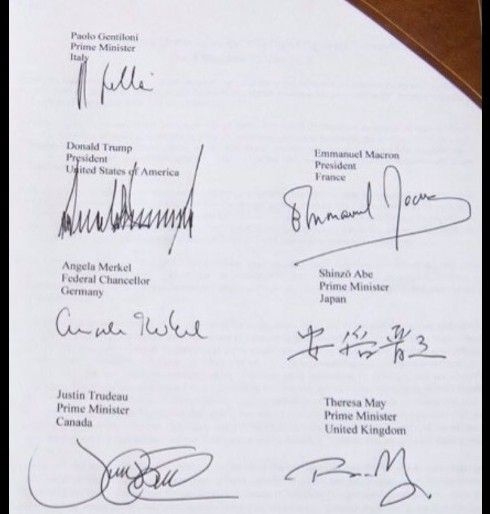 Paolo Gentiloni
Prime Minister
Italy
Donald Trump
President
United States of America
Emmanuel Macron
President
France
Emmanuel Macron
Angela Merkel
Federal Chancellor
Germany
Angela Merkel
Shinzō Abe
Prime Minister
Japan
安倍晋三
Justin Trudeau
Prime Minister
Canada
Theresa May
Prime Minister
United Kingdom